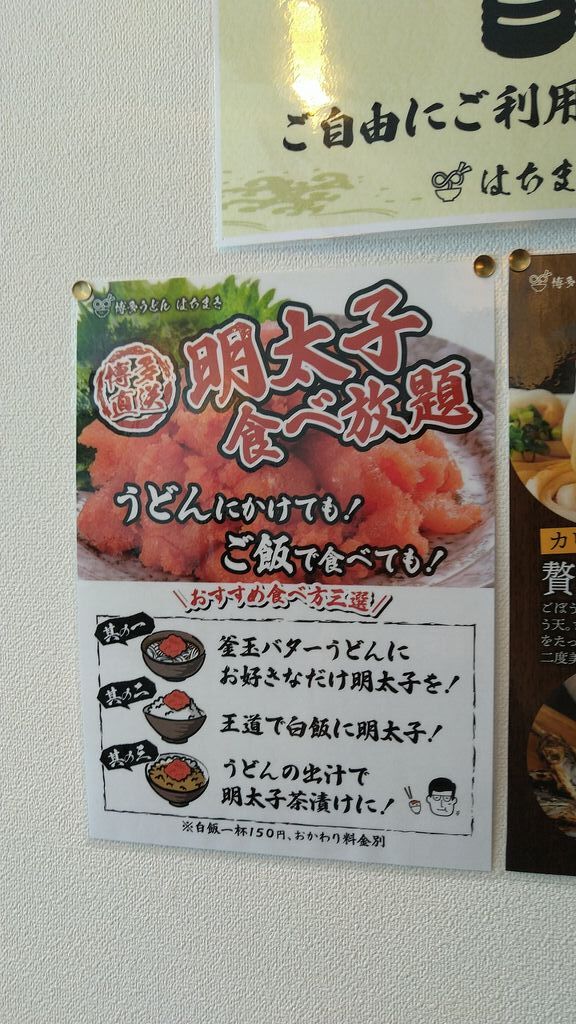 ご自由にご利用
はちま
博多うどん はちまき
博多
直送
明太子
食べ放題
うどんにかけても!
ご飯で食べても!
おすすめ食べ方三選
其の一
釜玉バターうどんに
お好きなだけ明太子を!
其の二
王道で白飯に明太子!
其の三
うどんの出汁で
明太子茶漬けに!
※白飯一杯150円、おかわり料金別
博多
カ
贅
ごぼう
う天。
をたっ
二度美